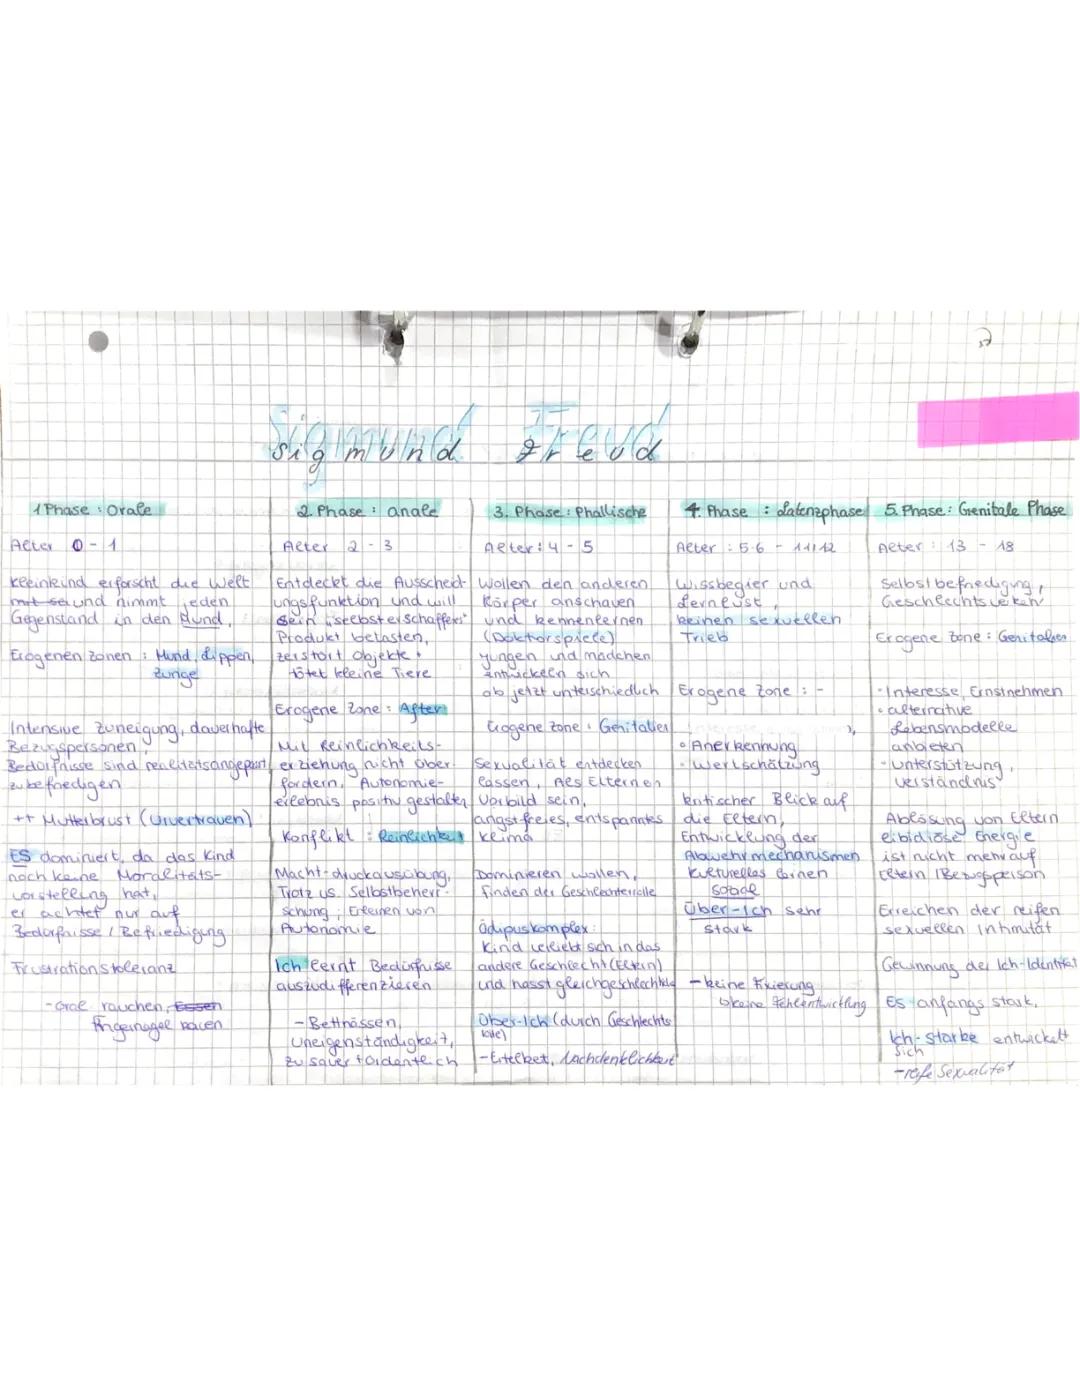 Sigmund Freud
1 Phase : Orale
Alter 0 - 1
Kleinkind erforscht die Welt
mit sei und nimmt jeden
Gegenstand in den Mund,
Erogenen Zonen : Mund, Lippen,
Zunge
Intensive Zuneigung, dauerhafte
Bezugspersonen,
Bedürfnisse sind realitätsangepasst
zu befriedigen
++ Mutterbrust (Urvertrauen)
ES dominiert, da das Kind
noch keine Moralitäts-
vorstellung hat,
er achtet nur auf
Bedürfnisse / Befriedigung
Frustrationstoleranz
- Oral rauchen, Essen
Fingernägel kauen
2. Phase : anale
Alter 2 - 3
Entdeckt die Ausscheid-
ungsfunktion und will
sein "selbsterschaffens"
Produkt betasten,
zerstört Objekte,
tötet kleine Tiere
Erogene Zone : After
Mit Reinlichkeits-
erziehung nicht über-
fordern, Autonomie-
erlebnis positiv gestalten
Konflikt : Reinlichkeit
Macht-druckausübung,
Trotz vs. Selbstbeherr-
schung ; Erlernen von
Autonomie
Ich lernt Bedürfnisse
auszudifferenzieren
- Bettnässen,
Uneigenständigkeit,
zu sauer + ordentlich
3. Phase : Phallische
Alter: 4 - 5
Wollen den anderen
Körper anschauen
und kennenlernen
(Doktorspiele)
Jungen und mädchen
entwickeln sich
ab jetzt unterschiedlich
Erogene Zone : Genitalien
Sexualität entdecken
lassen, Als Eltern ein
Vorbild sein,
angstfreies, entspanntes
Klima
Dominieren wollen,
Finden der Geschlechterrolle
Ödipuskomplex:
Kind verliebt sich in das
andere Geschlecht (Eltern)
und hasst gleichgeschlechtliche
Über-Ich (durch Geschlechts
rolle)
- Eitelkeit, Nachdenklichkeit
4. Phase : Latenzphase
Alter : 5-6 - 11/12
Wissbegier und
Lernlust,
keinen sexuellen
Trieb
Erogene Zone : -
• Anerkennung
• Wertschätzung
kritischer Blick auf
die Eltern,
Entwicklung der
Abwehrmechanismen
kulturelles lernen
soziale
Über-Ich sehr
stark
- keine Fixierung
↳ keine Fehlentwicklung
5. Phase: Genitale Phase
Alter : 13 - 18
Selbstbefriedigung,
Geschlechtsverkehr
Erogene Zone : Genitalien
• Interesse, Ernstnehmen
• alternative
Lebensmodelle
anbieten
- Unterstützung,
Verständnis
Ablösung von Eltern
libidiöse Energie
ist nicht mehr auf
Eltern / Bezugsperson
Erreichen der reifen
sexuellen Intimität
Gewinnung der Ich-Identität
Es anfangs stark,
Ich-stärke entwickelt
sich
- reife Sexualität